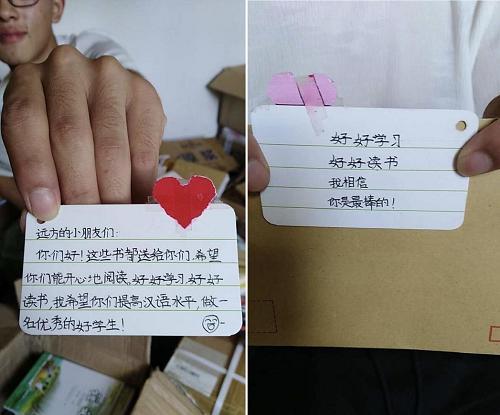 远方的小朋友们:
你们好!这些书都送给你们.希望
你们能开心地阅读.好好学习.好好
读书,我希望你们提高汉语水平,做一
名优秀的好学生!
好好学习
好好读书
我相信
你是最棒的!